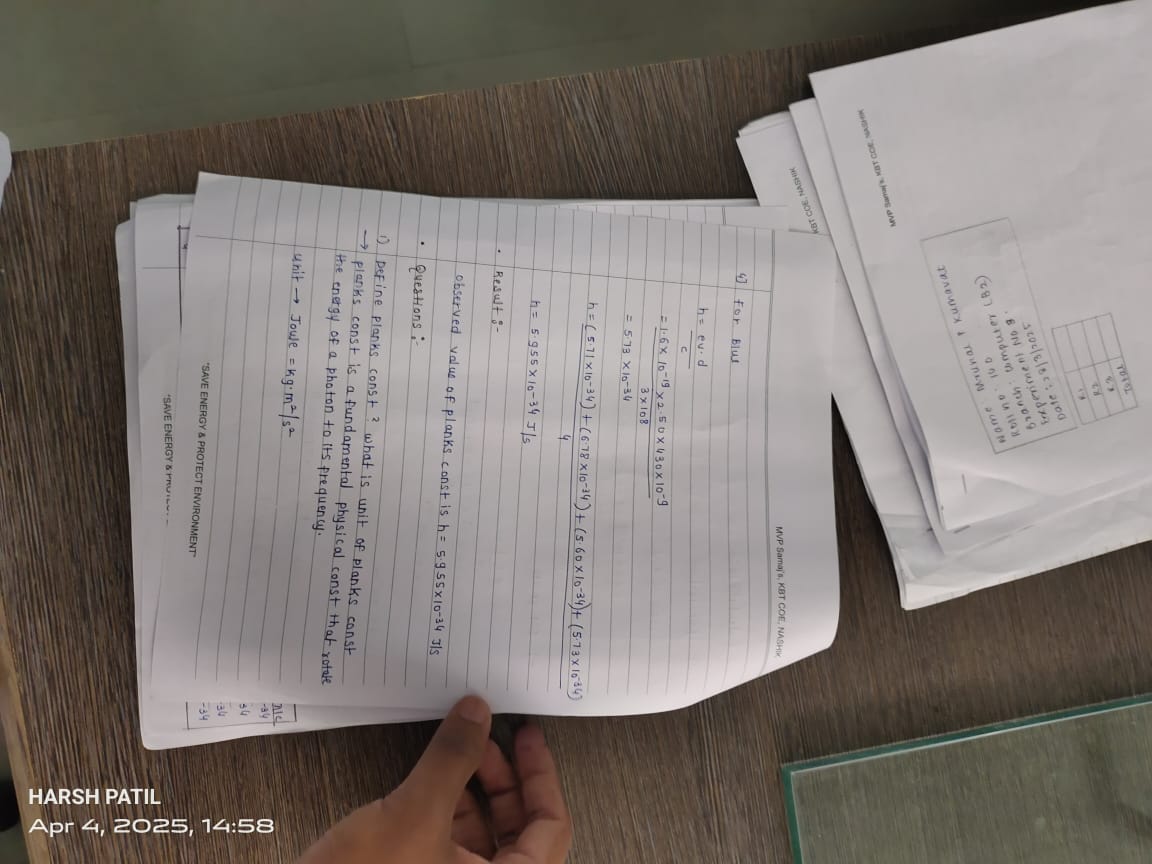 Total
R3
R2
R1
Name: Mrunal P Kumavat
Roll no: 100
Branch: Computer (B2)
Experiment No 8.
Date: 28/3/2025
MVP Samaj's, KBT COE, NASHIK
KBT COE, NASHIK
MVP Samaj's, KBT COE, NASHIK
4] For Blue
h = ev.d
c
= 1.6 x 10-19 x 2.50 x 430 x 10-9
3 x 108
= 5.73 x 10-34
h = (5.71 x 10-34) + (6.78 x 10-34) + (5.60 x 10-34) + (5.73 x 10-34)
4
h = 5.955 x 10-34 J/s
• Result :-
observed value of planks const is h = 5.955 x 10-34 J/s
• Questions :-
1) Define planks const ? what is unit of planks const
→ planks const is a fundamental physical const that rotate
the energy of a photon to its frequency.
unit → Joule = kg.m²/s²
-34
34
-34
-34
"SAVE ENERGY & PROTECT ENVIRONMENT"
"SAVE ENERGY &
HARSH PATIL
Apr 4, 2025, 14:58